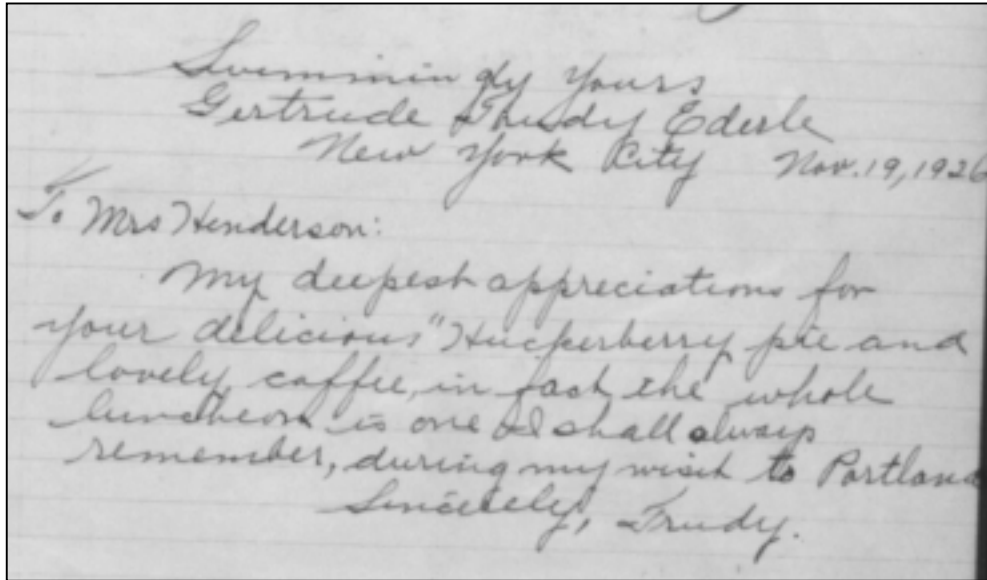 Swimmingly Yours
Gertrude Trudy Ederle
New York City Nov. 19, 1926
To Mrs Henderson:
My deepest appreciations for
your delicious "Huckerberry pie and
lovely coffee, in fact the whole
luncheon is one I shall always
remember, during my visit to Portland
Sincerely, Trudy.